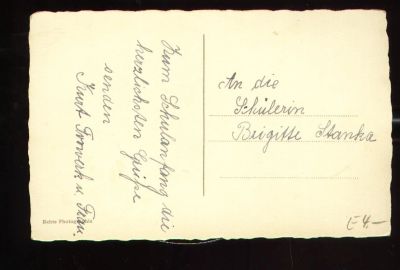 Zum Schulanfang die
herzlichsten Grüße
senden
Kurt u. Frau.
An die
Schülerin
Brigitte Stanka
Echte Photographie
E 4,-